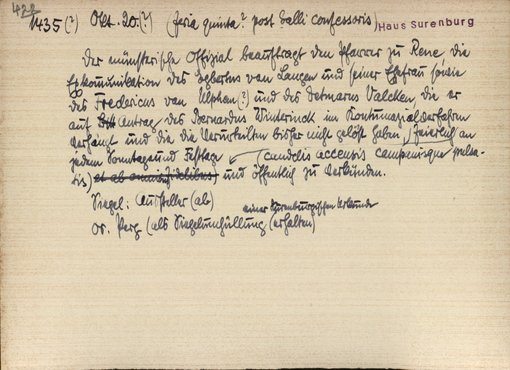 422
1435(?) Okt. 20.(?) (feria quinta? post Galli confessoris) Haus Surenburg
Der münsterische Offizial beauftragt den Pfarrer zu Rene die
Exkommunikation des Egbertus van Langen und seiner Ehefrau sowie
des Fredericus van Ulphen(?) und des Detmarus Valcken, die er
auf Antrag des Bernardus Winterinck im Kontumazialverfahren
verhängt und die die Verurteilten bisher nicht gelöst haben, feierlich an
jedem Sonntag und Festtag (candelis accensis campanisque pulsa-
tis) et ab omnibus fidelibus) und öffentlich zu verkünden.
Siegel: Aussteller (ab)
einer Surenburgischen Urkunde
Or. Perg (als Siegelumhüllung erhalten)